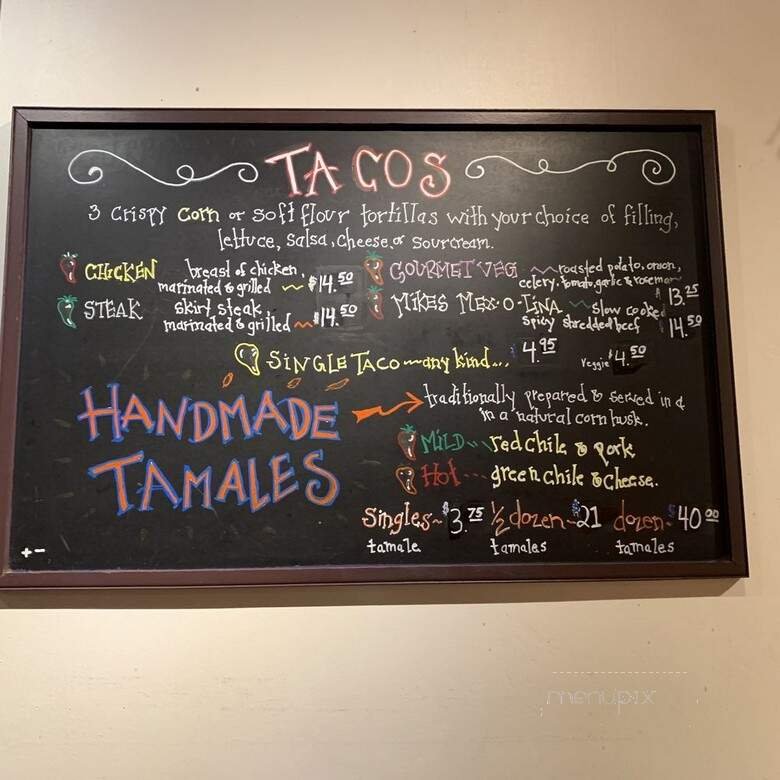 TACOS
3 Crispy Corn or soft flour tortillas with your choice of filling,
lettuce, salsa, cheese, or sourcream.
CHICKEN breast of chicken, marinated & grilled ~ $14.50
STEAK skirt steak, marinated & grilled ~ $14.50
GOURMET VEG ~ roasted potato, onion, celery, tomato, garlic & rosemary $13.25
MIKES MEX-O-LINA ~ slow cooked spicy shredded beef $14.50
SINGLE TACO ~ any kind... $4.95 Veggie $4.50
HANDMADE
TAMALES
traditionally prepared & served in a
in a natural corn husk.
MILD ~ red chile & pork
HOT --- green chile & cheese.
Singles ~ $3.75 1/2 dozen ~ $21 dozen ~ $40.00
tamale tamales tamales
+-
menupix